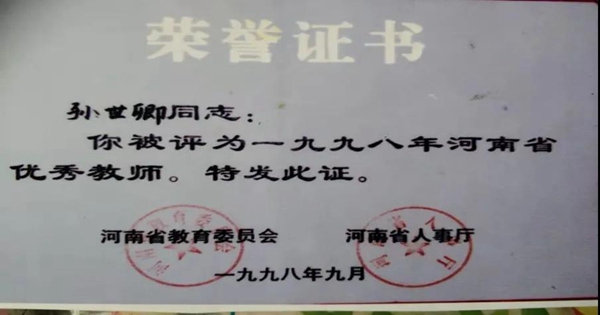 荣誉证书
孙世卿同志：
你被评为一九九八年河南省
优秀教师。特发此证。
河南省教育委员会 河南省人事厅
一九九八年九月